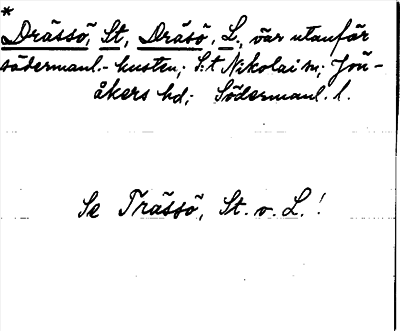 *
Drässö, St, Dräsö, L., öar utanför
södermanl.-kusten; S:t Nikolai sn; Jön-
åkers hd; Södermanl. l.
Se Trässö, St. o. L.!